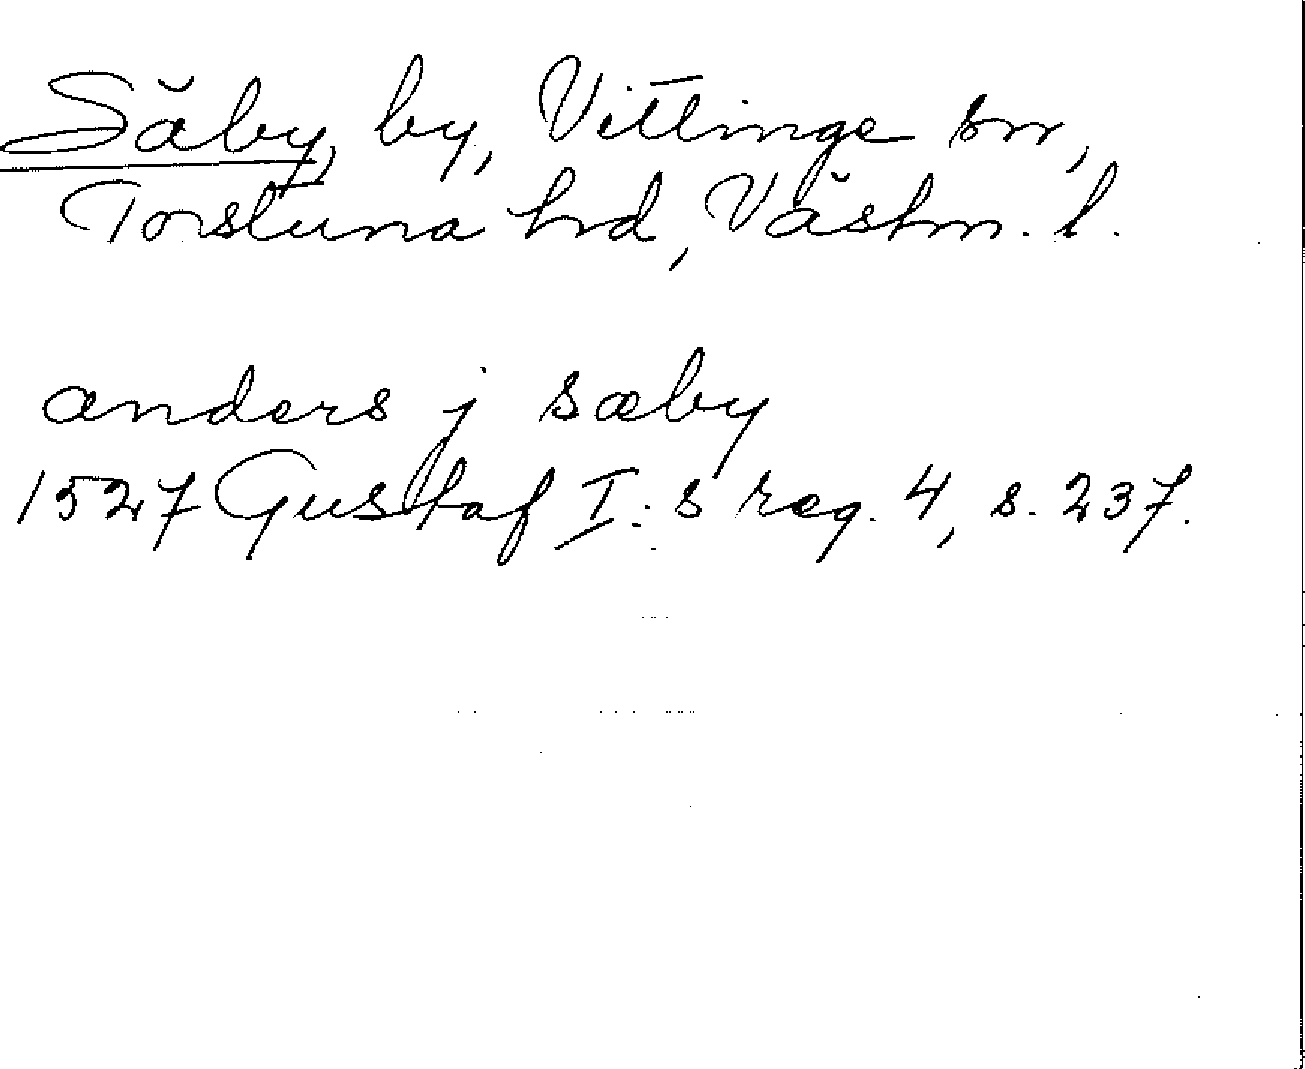 Säby, by, Vittinge sn,
Torstuna hd, Västm. l.
anders j sæby
1527 Gustaf I:s reg. 4, s. 237.